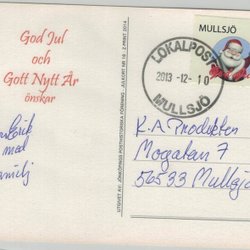 God Jul
och
Gott Nytt År
önskar
Erik
med
familj
UTGIVET AV: JÖNKÖPINGS POSTHISTORISKA FÖRENING - JULKORT NR 19 - Z-PRINT 2014
MULLSJÖ
LOKALPOST
2013-12-10
MULLSJÖ
K.A Produkter
Mogatan 7
56533 Mullsjö